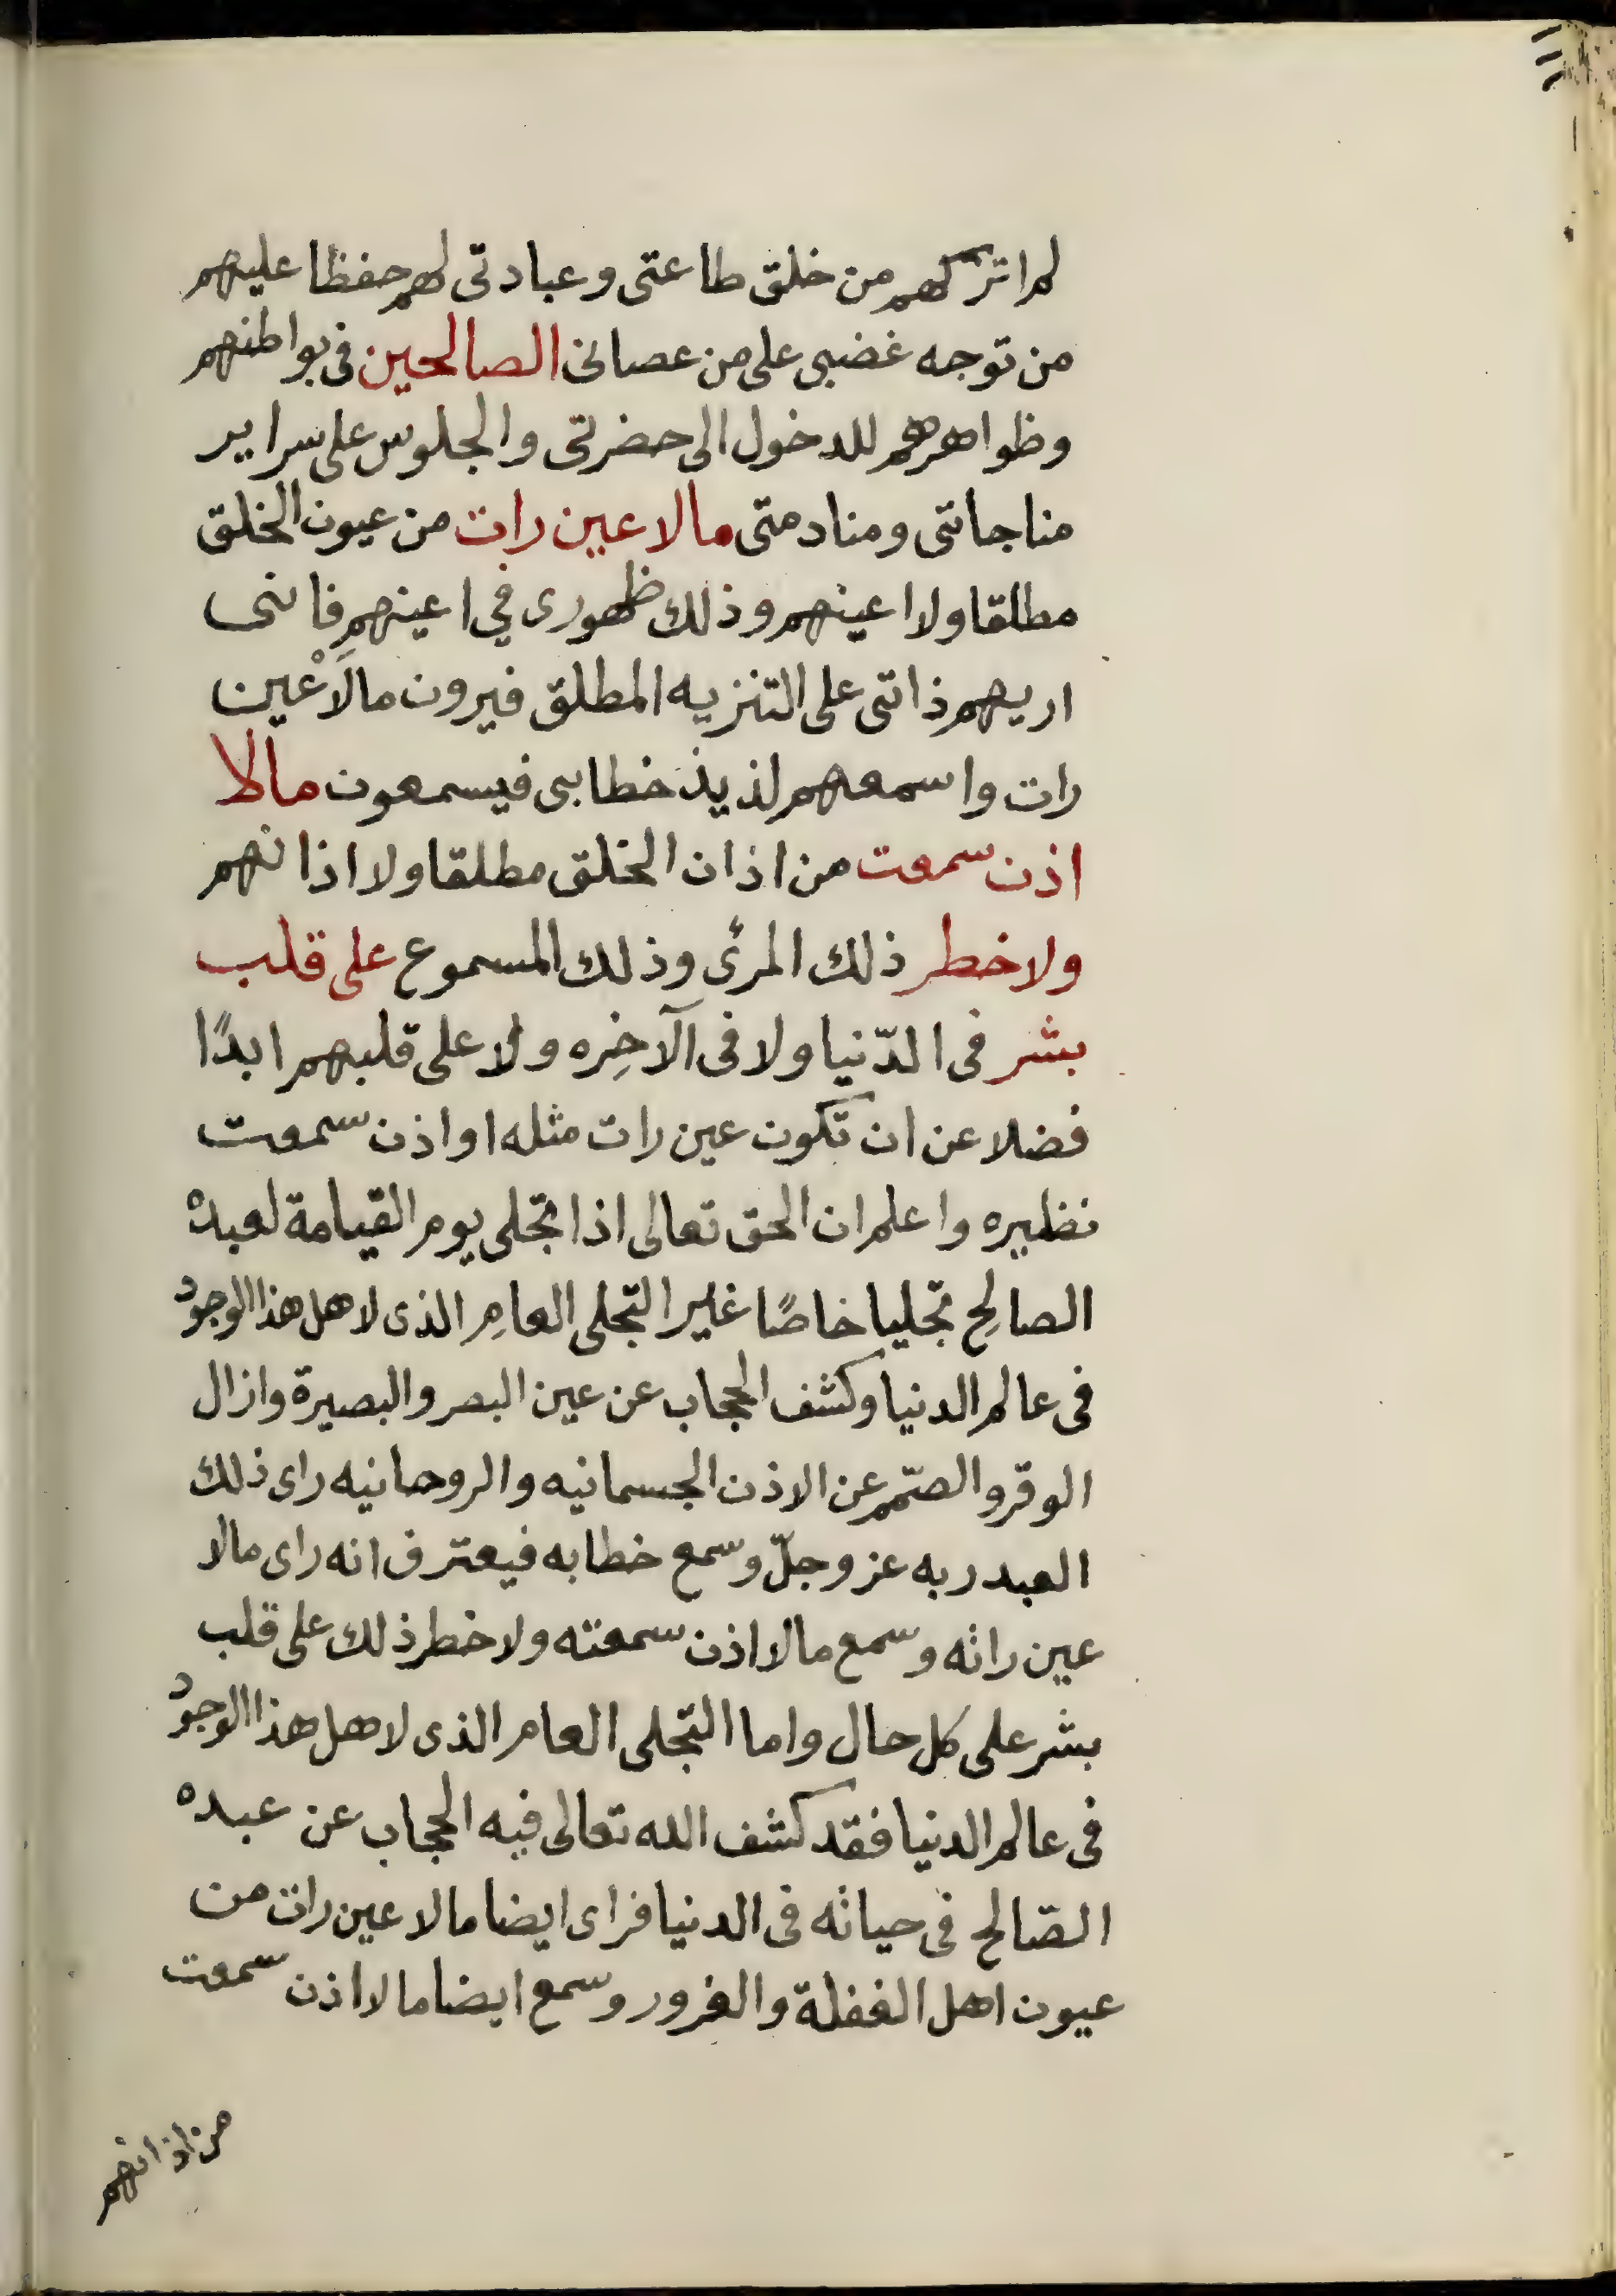 ١١١
لم اتركهم من خلق طاعتى وعبادتى لهم حفظا عليهم
من توجه غضبى على من عصانى الصالحين فى بواطنهم
وظواهرهم للدخول الى حضرتى والجلوس على سراير
مناجاتى ومنادمتى مالا عين رات من عيون الخلق
مطلقا ولا اعينهم وذلك ظهورى في اعينهم فاننى
اريهم ذاتى على التنزيه المطلق فيرون مالا عين
رات واسمعهم لذيذ خطابى فيسمعون مالا
اذن سمعت من اذان الخلق مطلقا ولا اذانهم
ولا خطر ذلك المرئى وذلك المسموع على قلب
بشر فى الدّنيا ولا فى الآخِره ولا على قلبهم ابدًا
فضلا عن ان تكون عين رات مثله او اذن سمعت
نظيره واعلم ان الحق تعالى اذا تجلى يوم القيامة لعبده
الصالحِ تجليا خاصًا غير التجلى العامِ الذى لاهل هذا الوجود
فى عالم الدنيا وكشف الحجاب عن عين البصر والبصيرة وازال
الوقر والصّمم عن الاذن الجسمانيه والروحانيه راى ذلك
العبد ربه عز وجلّ وسمع خطابه فيعترف انه راى مالا
عين راته وسمع مالا اذن سمعته ولا خطر ذلك على قلب
بشر على كل حال واما التجلى العام الذى لاهل هذا الوجود
فى عالم الدنيا فقد كشف الله تعالى فيه الحجاب عن عبده
الصّالح فى حياته فى الدنيا فراى ايضا مالا عين رات من
عيون اهل الغفلة والغرور وسمع ايضا مالا اذن سمعت
من اذانهم